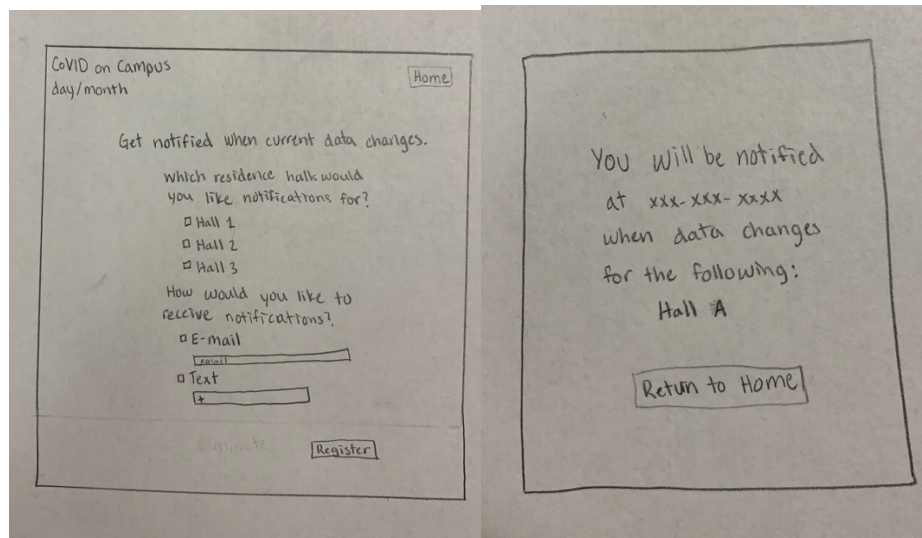 COVID on Campus
day/month
Home
Get notified when current data changes.
Which residence halls would
you like notifications for?
Hall 1
Hall 2
Hall 3
How would you like to
receive notifications?
E-mail
email
Text
+
Register
You will be notified
at xxx-xxx-xxxx
when data changes
for the following:
Hall A
Return to Home